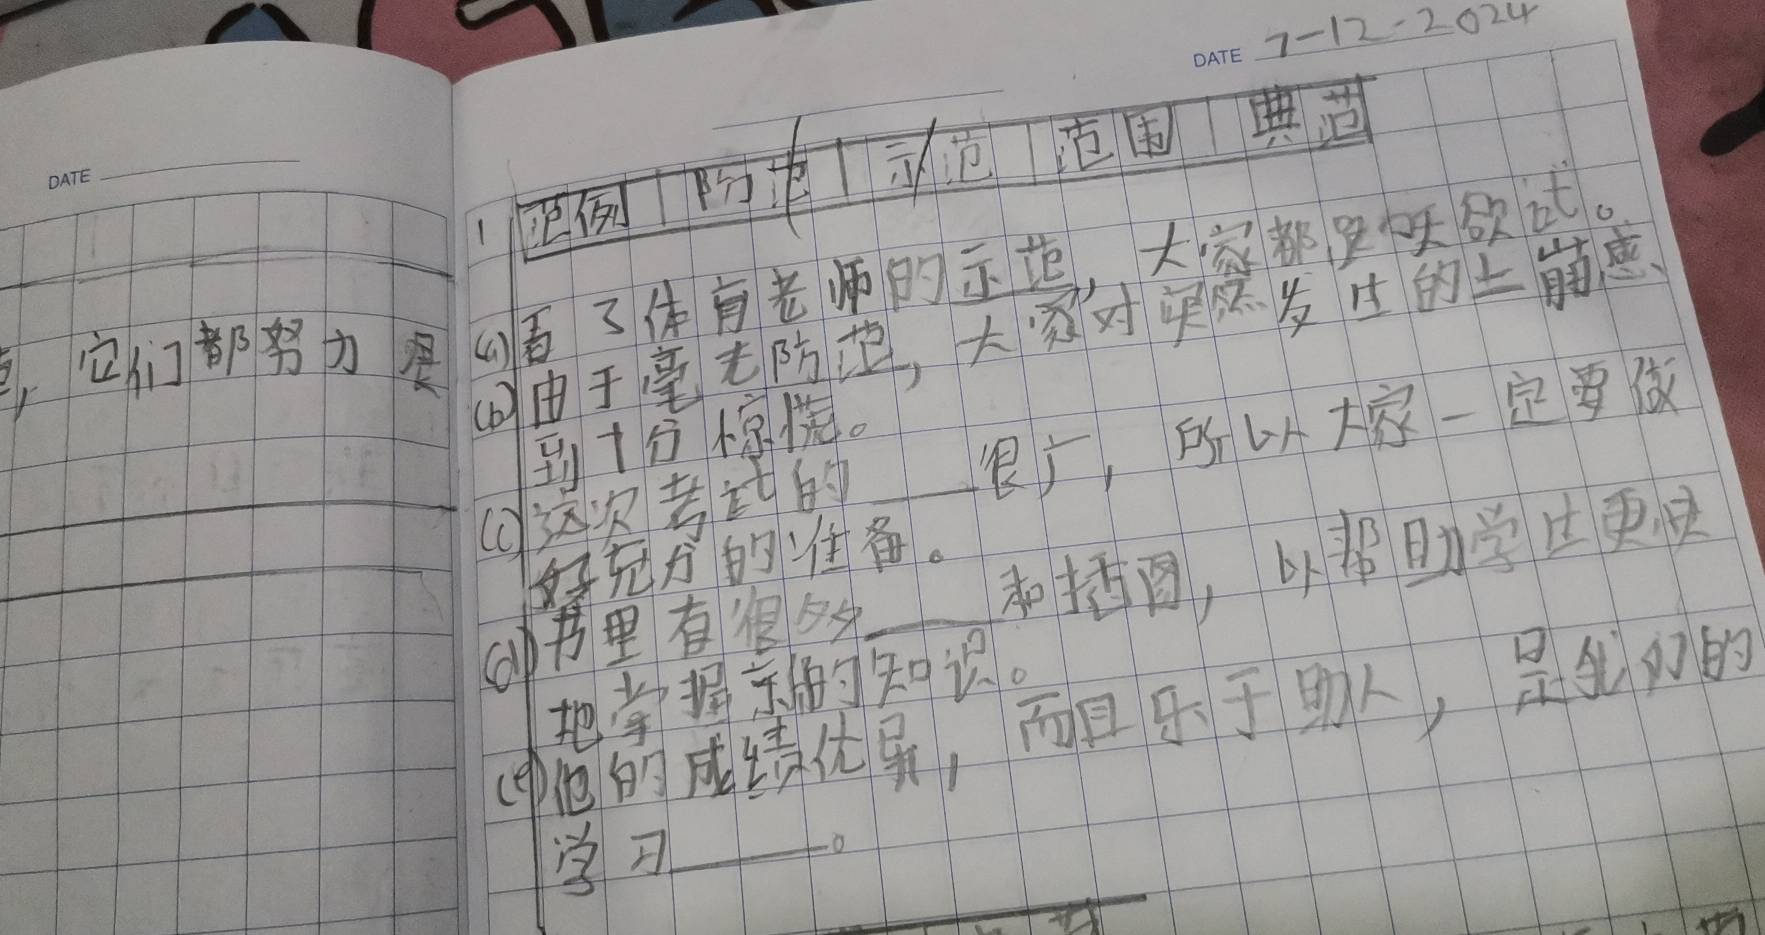 DATE
它们都努力
DATE 7-12-2024
1 范例 | 防范 | 示范 | 范围 | 典范
(a) 看了体育老师的示范，大家都跃欲试。
(b) 由于毫无防范，大家对突然发生的土崩感
到十分惊慌。
(c) 这次考试的____很广，所以大家一定要做
好充分的准备。
(d) 书里有很多____和插图，以帮助学生更快
地掌握新的知识。
(e) 他的成绩优异，而且乐于助人，是我们的
学习____。